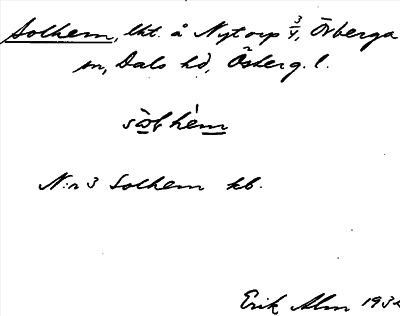 Solhem, lht. å Nytorp 3/4, Örberga
sn, Dals hd, Österg. l.
N:r 3 Solhem kb.
Erik Alm 193